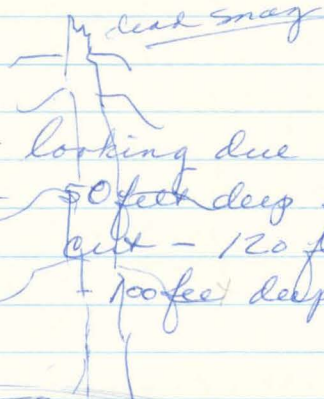 dead snag
looking due
50 feet deep
cut - 120 f
- 100 feet deep